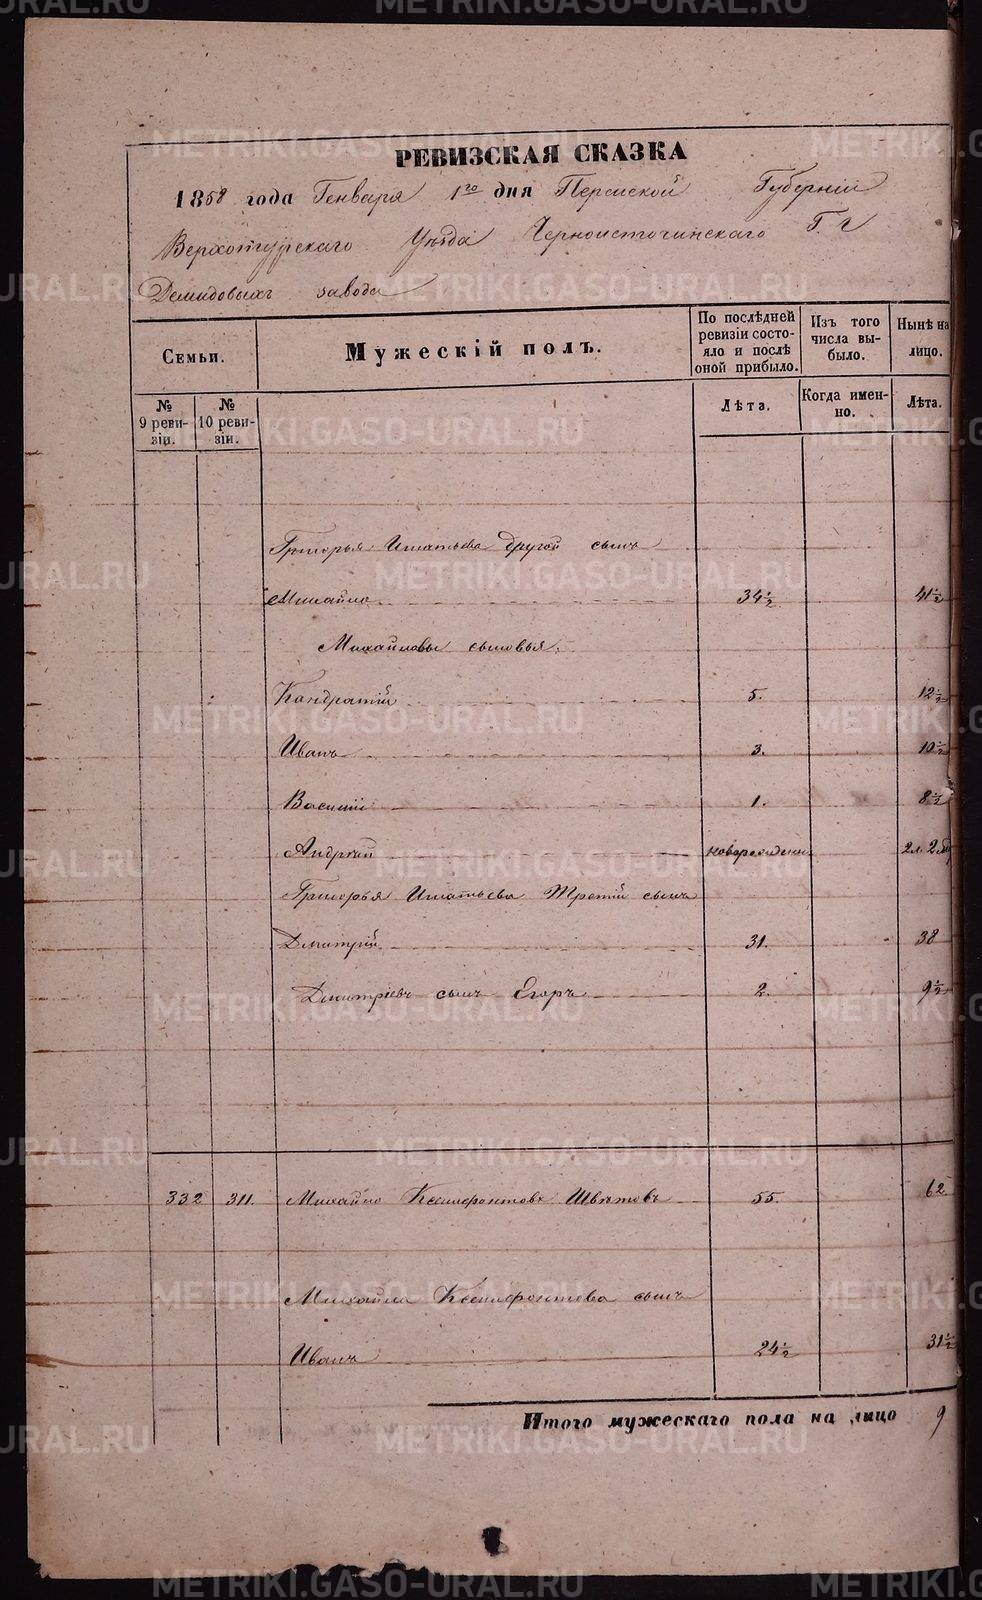 РЕВИЗСКАЯ СКАЗКА
1858 года Генваря 1го дня Пермской Губерніи
Верхотурскаго Уѣзда Черноисточинскаго Г. г
Демидовыхъ завода
Семьи.
Мужескій полъ.
По послѣдней ревизіи состояло и послѣ оной прибыло.
Изъ того числа выбыло.
Нынѣ на лицо.
№ 9 ревизіи.
№ 10 ревизіи.
Лѣта.
Когда именно.
Лѣта.
Григорья Игнатьева другой сынъ
Михайло 34½ 41½
Михайловы сыновья:
Кондратій 5. 12½
Иванъ 3. 10½
Василій 1. 8½
Андрей новорожден. 2 л. 2 м
Григорья Игнатьева Третій сынъ
Дмитрій 31. 38
Дмитріевъ сынъ Егоръ 2. 9½
332 311. Михайло Ксенофонтовъ Швѣтовъ 55. 62
Михайла Ксенофонтова сынъ
Иванъ 24½ 31½
Итого мужескаго пола на лицо 9
METRIKI.GASO-URAL.RU